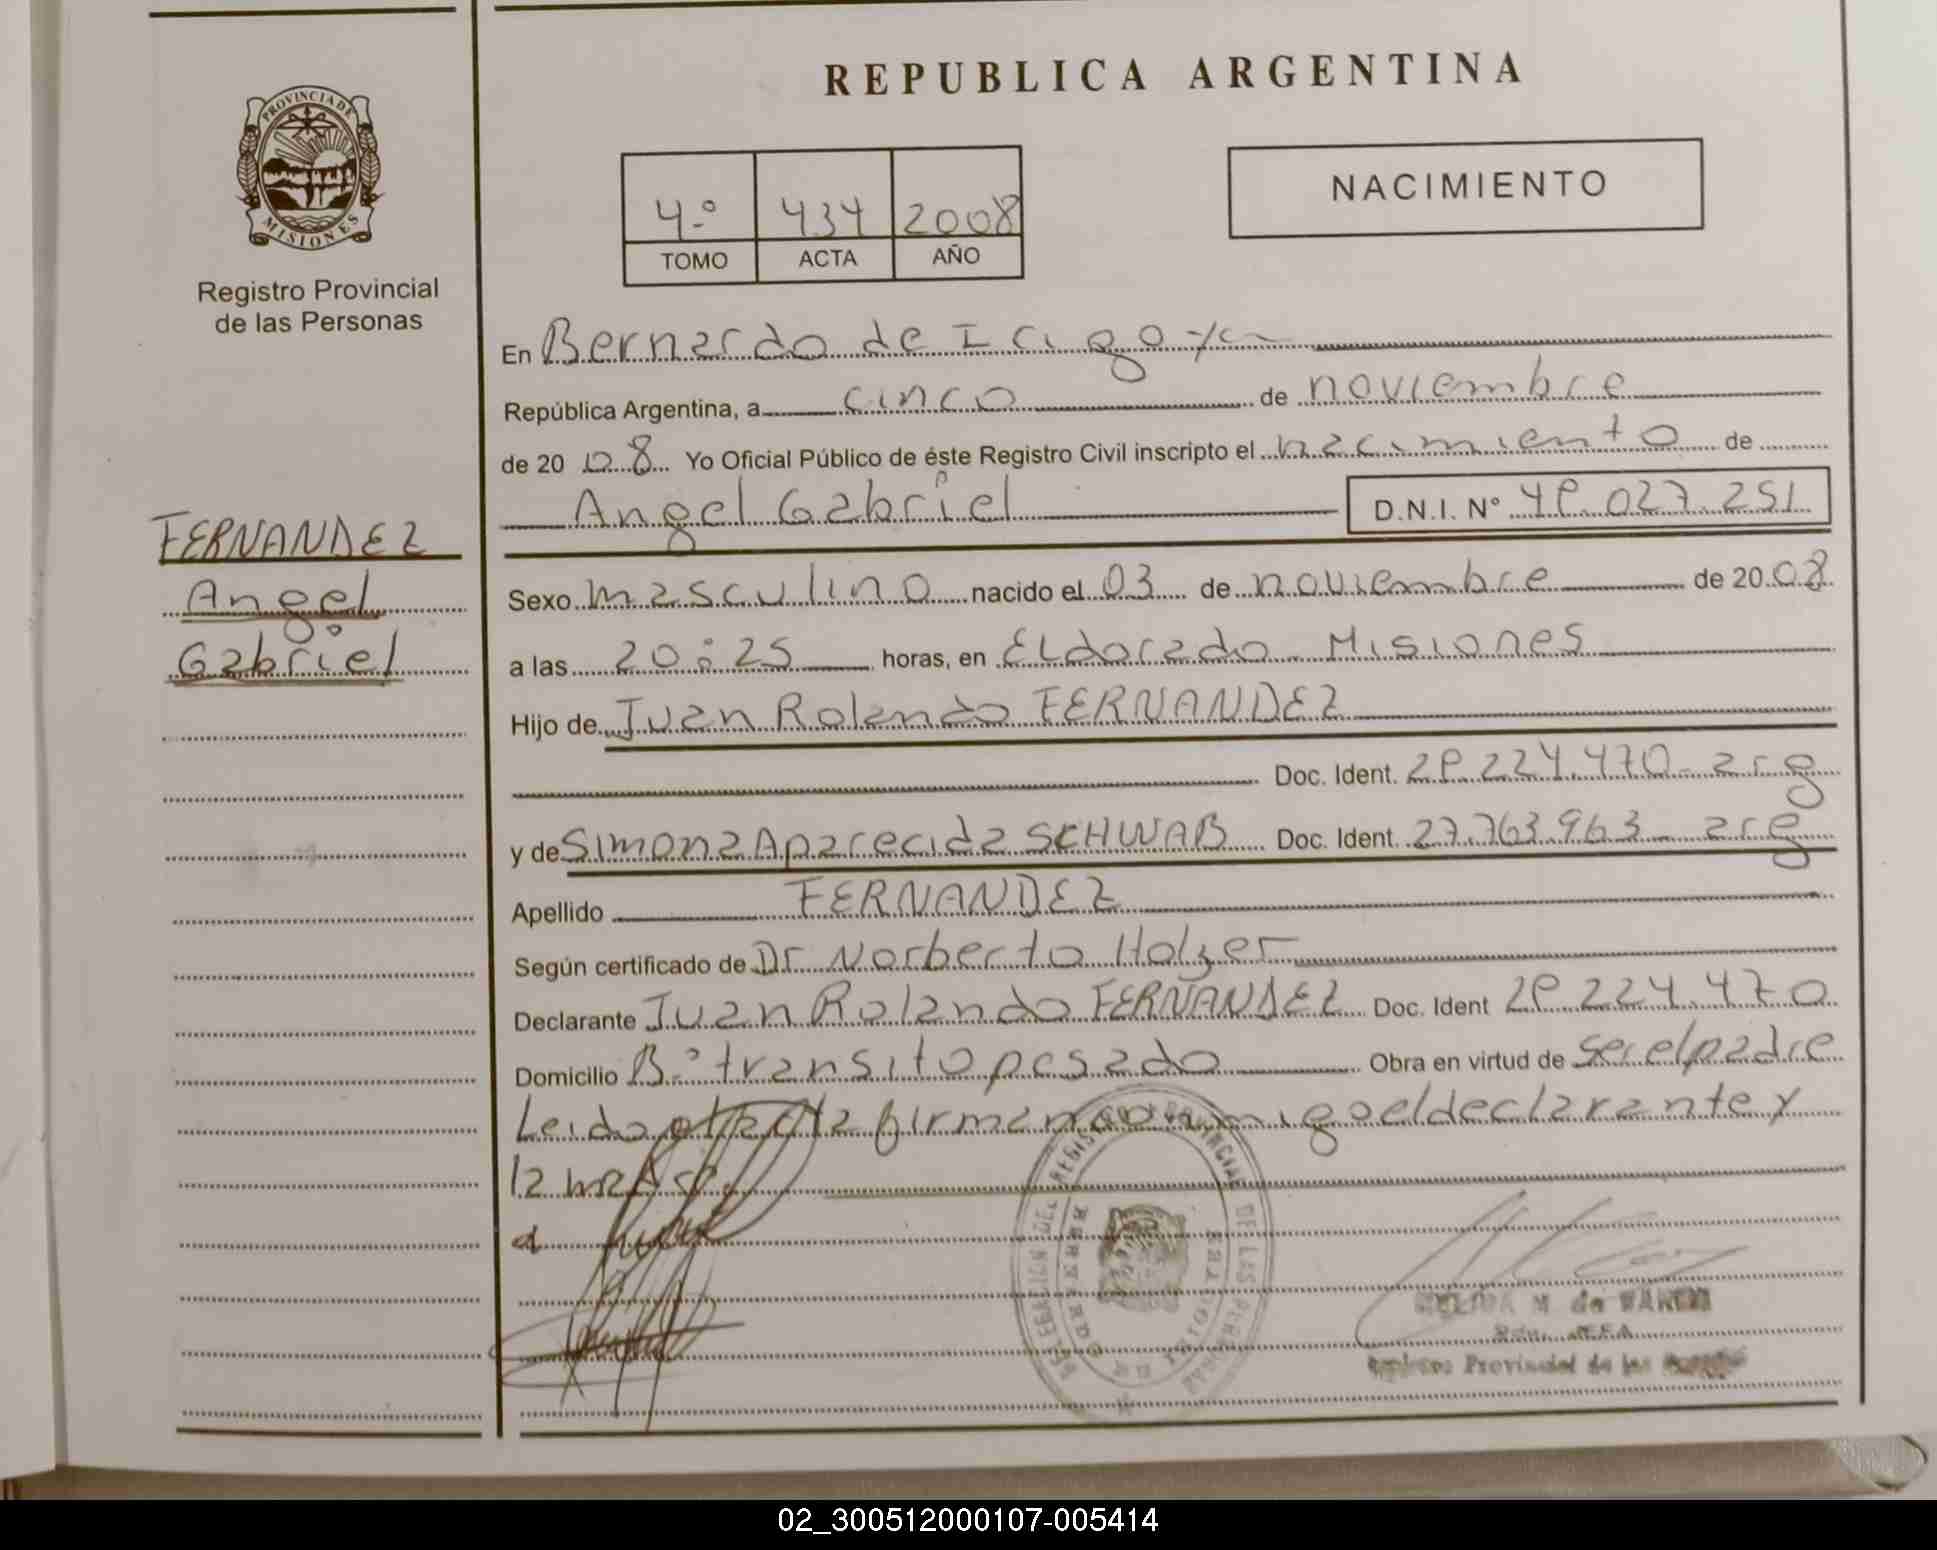 PROVINCIA DE
MISIONES
Registro Provincial
de las Personas
FERNANDEZ
Angel
Gabriel
REPUBLICA ARGENTINA
4º 434 2008
TOMO ACTA AÑO
NACIMIENTO
En Bernardo de Irigoyen
República Argentina, a cinco de noviembre
de 20 08 Yo Oficial Público de éste Registro Civil inscripto el nacimiento de
Angel Gabriel D.N.I. Nº 49.027.251
Sexo masculino nacido el 03 de noviembre de 20 08
a las 20:25 horas, en Eldorado Misiones
Hijo de Juan Rolando FERNANDEZ
Doc. Ident. 29.224.470 - arg
y de Simona Aparecida SCHWAB Doc. Ident. 27.763.963 - arg
Apellido FERNANDEZ
Según certificado de Dr Norberto Holzer
Declarante Juan Rolando FERNANDEZ Doc. Ident 29.224.470
Domicilio Bº transito pesado Obra en virtud de ser el padre
Leido el acta firman conmigo el declarante y
la
DELEGACION DEL REGISTRO PROVINCIAL DE LAS PERSONAS
M. de
Registro Provincial de las Personas
02_300512000107-005414